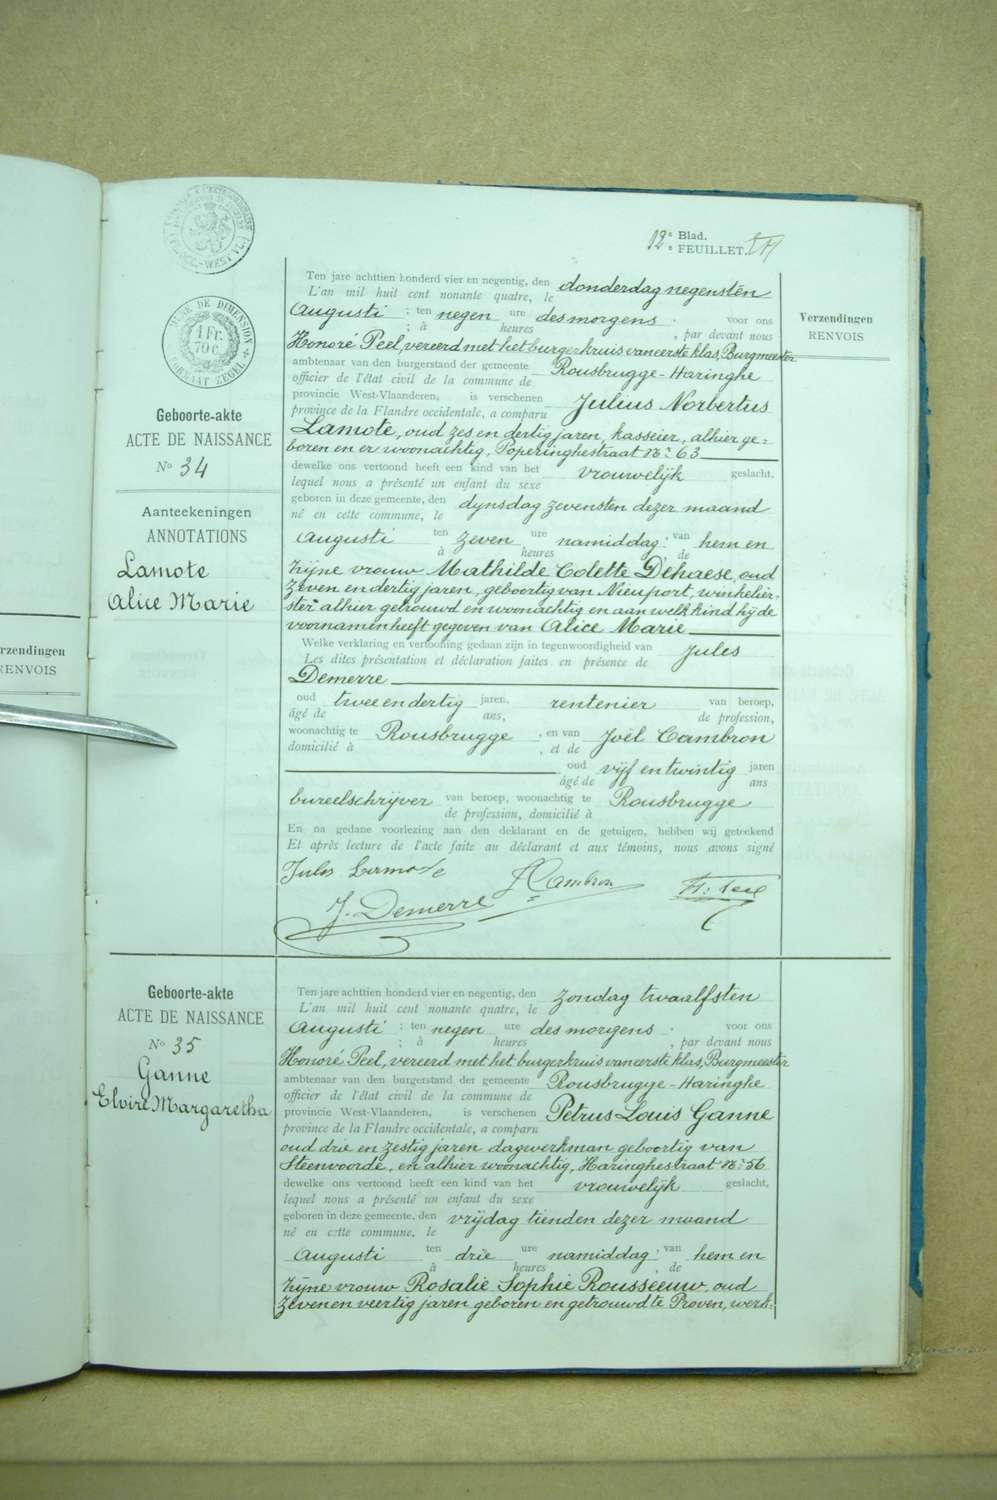 12e Blad.
e FEUILLET.
TIMBRE DE DIMENSION
1 Fr.
70 c.
FORMAAT ZEGEL
rzendingen
RENVOIS
Verzendingen
RENVOIS
Geboorte-akte
ACTE DE NAISSANCE
No 34
Aanteekeningen
ANNOTATIONS
Lamote
Alice Marie
Ten jare achttien honderd vier en negentig, den donderdag negensten
L'an mil huit cent nonante quatre, le
Augusti ; ten negen ure des morgens . voor ons
; à heures , par devant nous
Honoré Peel, vereerd met het burgerkruis van eerste klas, Burgmeester
ambtenaar van den burgerstand der gemeente Rousbrugge-Haringhe
officier de l'état civil de la commune de
provincie West-Vlaanderen, is verschenen Julius Norbertus
province de la Flandre occidentale, a comparu
Lamote, oud zes en dertig jaren, kasseier, alhier ge-
boren en er woonachtig, Poperinghestraat No 63
dewelke ons vertoond heeft een kind van het vrouwelijk geslacht,
lequel nous a présenté un enfant du sexe
geboren in deze gemeente, den dynsdag zevensten dezer maand
né en cette commune, le
Augusti ten zeven ure namiddag ; van hem en
à heures de
zijne vrouw Mathilde Colette Dehaese, oud
zeven en dertig jaren, geboortig van Nieuport, winkelier-
ster alhier getrouwd en woonachtig en aan welk kind hij de
voornamen heeft gegeven van Alice Marie
Welke verklaring en vertooning gedaan zijn in tegenwoordigheid van Jules
Les dites présentation et déclaration faites en présence de
Demerre
oud twee en dertig jaren, rentenier van beroep,
âgé de ans, de profession,
woonachtig te Rousbrugge , en van Joël Cambron
domicilié à , et de
oud vijf en twintig jaren
âgé de ans
bureelschrijver van beroep, woonachtig te Rousbrugge
de profession, domicilié à
En na gedane voorlezing aan den deklarant en de getuigen, hebben wij geteekend
Et après lecture de l'acte faite au déclarant et aux témoins, nous avons signé
Jules Lamote
J. Cambron
H. Peel
J. Demerre
Geboorte-akte
ACTE DE NAISSANCE
No 35
Ganne
Elvire Margaretha
Ten jare achttien honderd vier en negentig, den zondag twaalfsten
L'an mil huit cent nonante quatre, le
Augusti ; ten negen ure des morgens . voor ons
; à heures , par devant nous
Honoré Peel, vereerd met het burgerkruis van eerste klas, Burgmeester
ambtenaar van den burgerstand der gemeente Rousbrugge-Haringhe
officier de l'état civil de la commune de
provincie West-Vlaanderen, is verschenen Petrus Louis Ganne
province de la Flandre occidentale, a comparu
oud drie en zestig jaren dagwerkman geboortig van
Steenvoorde, en alhier woonachtig, Haringhestraat No 56
dewelke ons vertoond heeft een kind van het vrouwelijk geslacht,
lequel nous a présenté un enfant du sexe
geboren in deze gemeente, den vrijdag tienden dezer maand
né en cette commune, le
Augusti ten drie ure namiddag ; van hem en
à heures , de
zijne vrouw Rosalie Sophie Rousseeuw, oud
zeven en veertig jaren geboren en getrouwd te Proven, werk-